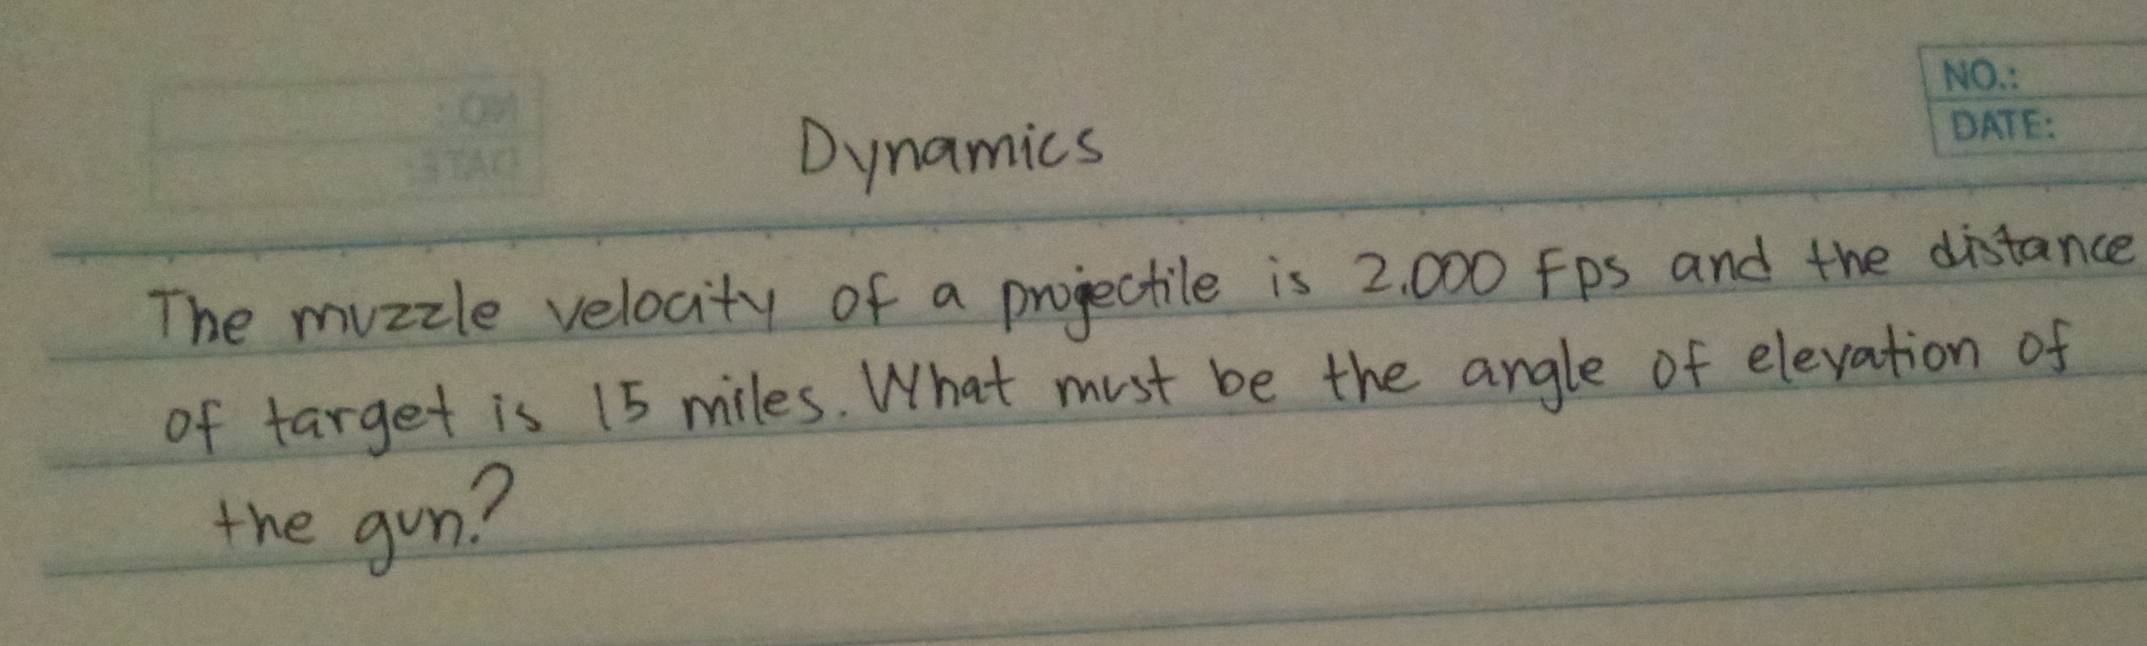 NO.:
DATE:
Dynamics
The muzzle velocity of a projectile is 2.000 Fps and the distance
of target is 15 miles. What must be the angle of elevation of
the gun?